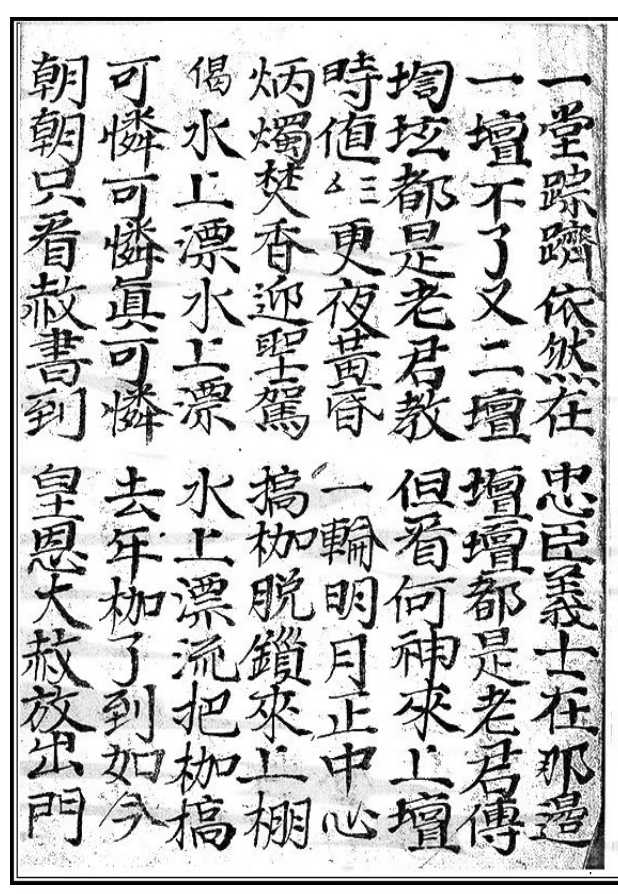 一堂踪躋依然在 忠臣義士在那邉
一壇不了又二壇 壇壇都是老君傳
壋坛都是老君教 但看何神來上壇
時值三更夜黃昏 一輪明月正中心
炳燭焚香迎聖駕 搞枷脱鎖來上棚
偈水上漂水上漂 水上漂流把枷搞
可憐可憐眞可憐 去年枷了到如今
朝朝只看赦書到 皇恩大赦放出門